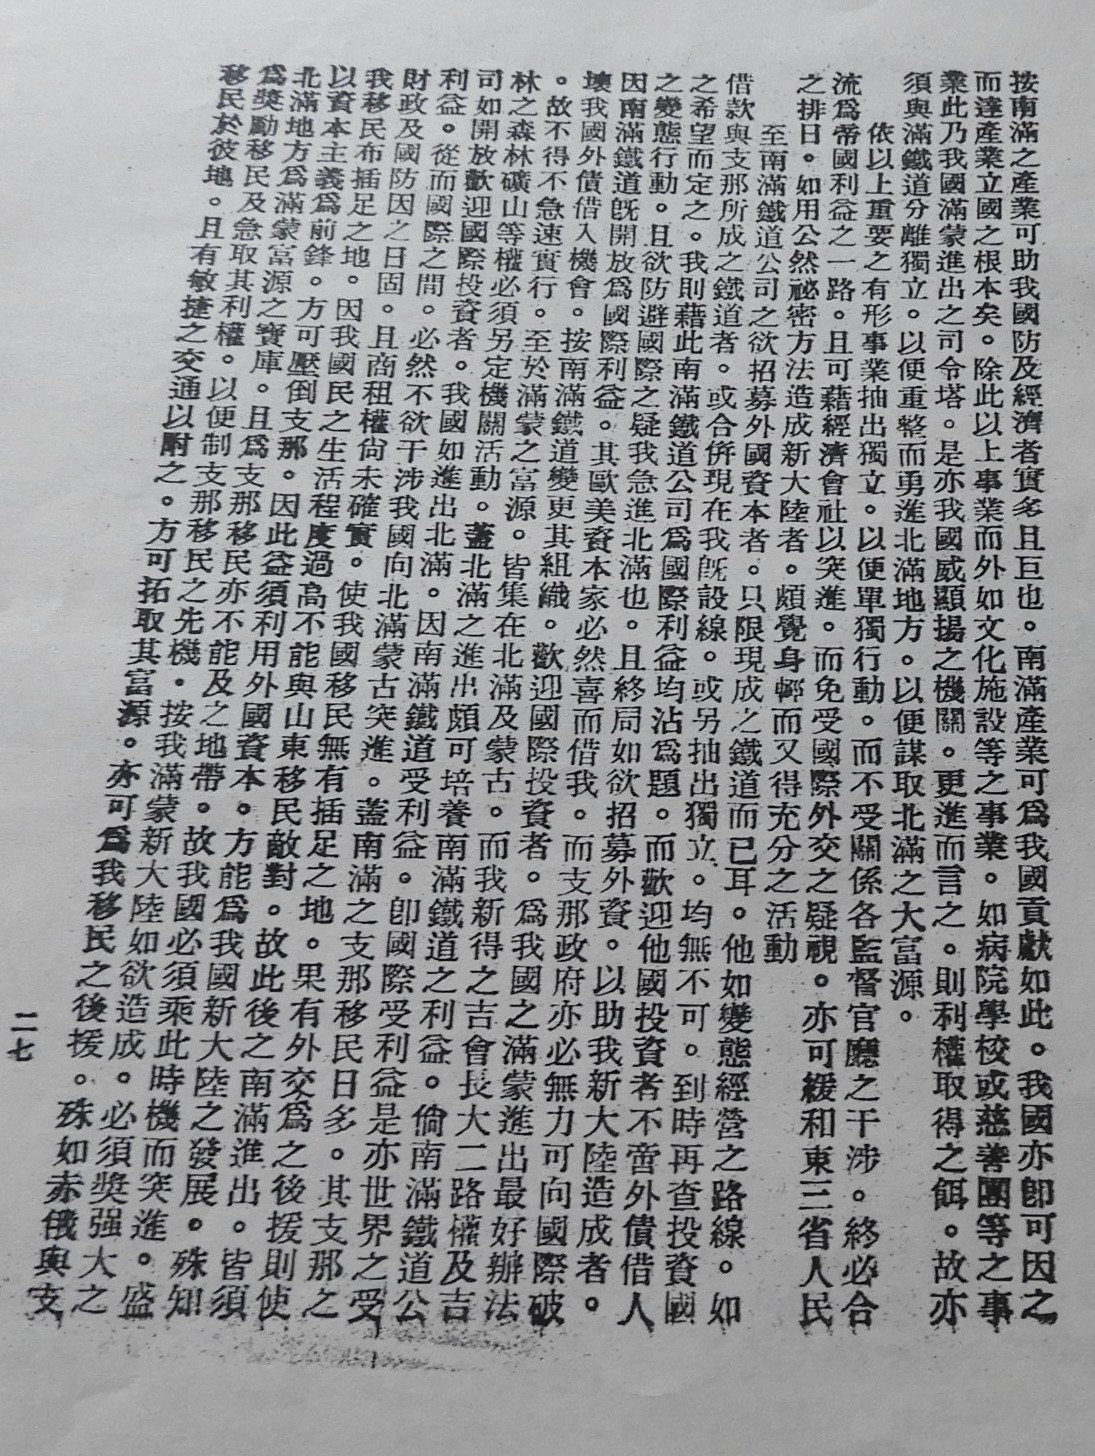 按南滿之產業可助我國防及經濟者實多且巨也。南滿產業可爲我國貢獻如此。我國亦卽可因之
而達產業立國之根本矣。除此以上事業而外如文化施設等之事業。如病院學校或慈善團等之事
業此乃我國滿蒙進出之司令塔。是亦我國威顯揚之機關。更進而言之。則利權取得之餌。故亦
須與滿鐵道分離獨立。以便重整而勇進北滿地方。以便謀取北滿之大富源。
依以上重要之有形事業抽出獨立。以便單獨行動。而不受關係各監督官廳之干涉。終必合
流爲帝國利益之一路。且可藉經濟會社以突進。而免受國際外交之疑視。亦可緩和東三省人民
之排日。如用公然祕密方法造成新大陸者。頗覺身輕而又得充分之活動
至南滿鐵道公司之欲招募外國資本者。只限現成之鐵道而已耳。他如變態經營之路線。如
借款與支那所成之鐵道者。或合併現在我旣設線。或另抽出獨立。均無不可。到時再查投資國
之希望而定之。我則藉此南滿鐵道公司爲國際利益均沾爲題。而歡迎他國投資者不啻外債借人
之變態行動。且欲防避國際之疑我急進北滿也。且終局如欲招募外資。以助我新大陸造成者。
因南滿鐵道旣開放爲國際利益。其歐美資本家必然喜而借我。而支那政府亦必無力可向國際破
壞我國外債借入機會。按南滿鐵道變更其組織。歡迎國際投資者。爲我國之滿蒙進出最好辦法
。故不得不急速實行。至於滿蒙之富源。皆集在北滿及蒙古。而我新得之吉會長大二路權及吉
林之森林礦山等權必須另定機關活動。蓋北滿之進出頗可培養南滿鐵道之利益。倘南滿鐵道公
司如開放歡迎國際投資者。我國如進出北滿。因南滿鐵道受利益。卽國際受利益是亦世界之受
利益。從而國際之間。必然不欲干涉我國向北滿蒙古突進。蓋南滿之支那移民日多。其支那之
財政及國防因之日固。且商租權尙未確實。使我國移民無有插足之地。果有外交爲之後援則使
我移民布插足之地。因我國民之生活程度過高不能與山東移民敵對。故此後之南滿進出。皆須
以資本主義爲前鋒。方可壓倒支那。因此益須利用外國資本。方能爲我國新大陸之發展。殊知
北滿地方爲滿蒙富源之寶庫。且爲支那移民亦不能及之地帶。故我國必須乘此時機而突進。盛
爲獎勵移民及急取其利權。以便制支那移民之先機。按我滿蒙新大陸如欲造成。必須獎强大之
移民於彼地。且有敏捷之交通以附之。方可拓取其富源。亦可爲我移民之後援。殊如赤俄與支
二七